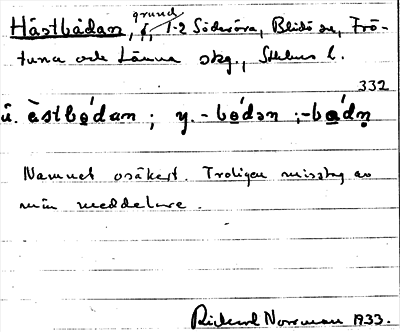 Hästbådan, grund, 1-2 Söderöra, Blidö sn, Frö-
tuna och Länna skg., Sthlms l.
332
u. èstbo̱´dan; y. -bo̱´dən ; -bo̱´dn̥
Namnet osäkert. Troligen misstag av
min meddelare.
Rickard Norrman 1933.